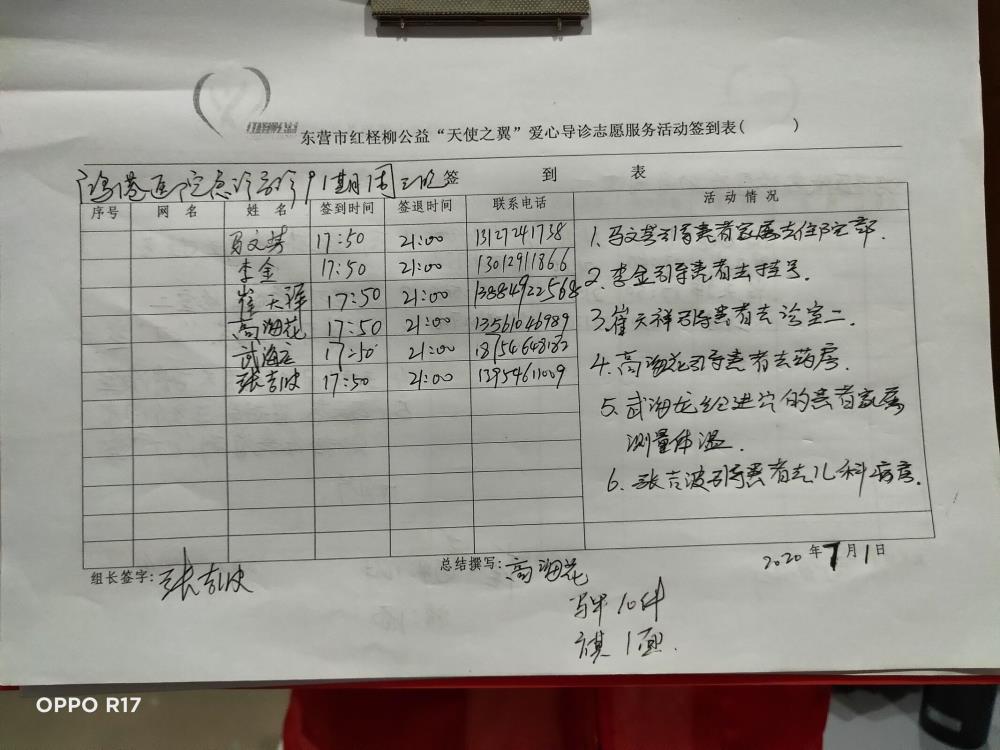 东营市红柽柳公益“天使之翼”爱心导诊志愿服务活动签到表( )
医院急诊导诊 期周三班 签 到 表
序号 网 名 姓 名 签到时间 签退时间 联系电话 活 动 情 况
马文芳 17:50 21:00 13127241738
李金 17:50 21:00 13012911866
崔天祥 17:50 21:00 13884922568
高海花 17:50 21:00 13561046989
武海龙 17:50 21:00
张吉波 17:50 21:00
1. 马文芳引导患者家属去住院部.
2. 李金引导患者去挂号.
3. 崔天祥引导患者去诊室二.
4. 高海花引导患者去药房.
5. 武海龙给进门的患者家属
测量体温.
6. 张吉波引导患者去儿科病房.
组长签字: 张吉波
总结撰写: 高海花
2020 年 7 月 1 日
马甲 10件
旗 1面.
OPPO R17